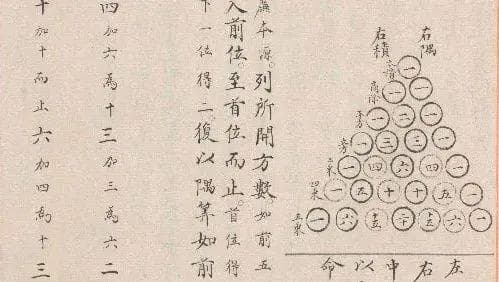 右隅
右積
本積 一
商除 一 一
平方 一 二 一
立方 一 三 三 一
三乘 一 四 六 四 一
四乘 一 五 十 十 五 一
五乘 一 六 十五 二十 十五 六 一
左
右
中
以
命
廉本源。列所開方數如前五
入前位。至首位而止。首位得
下一位得二。復以隅算如前
四加六為十三加三為六二
十加十而止六加四為十三